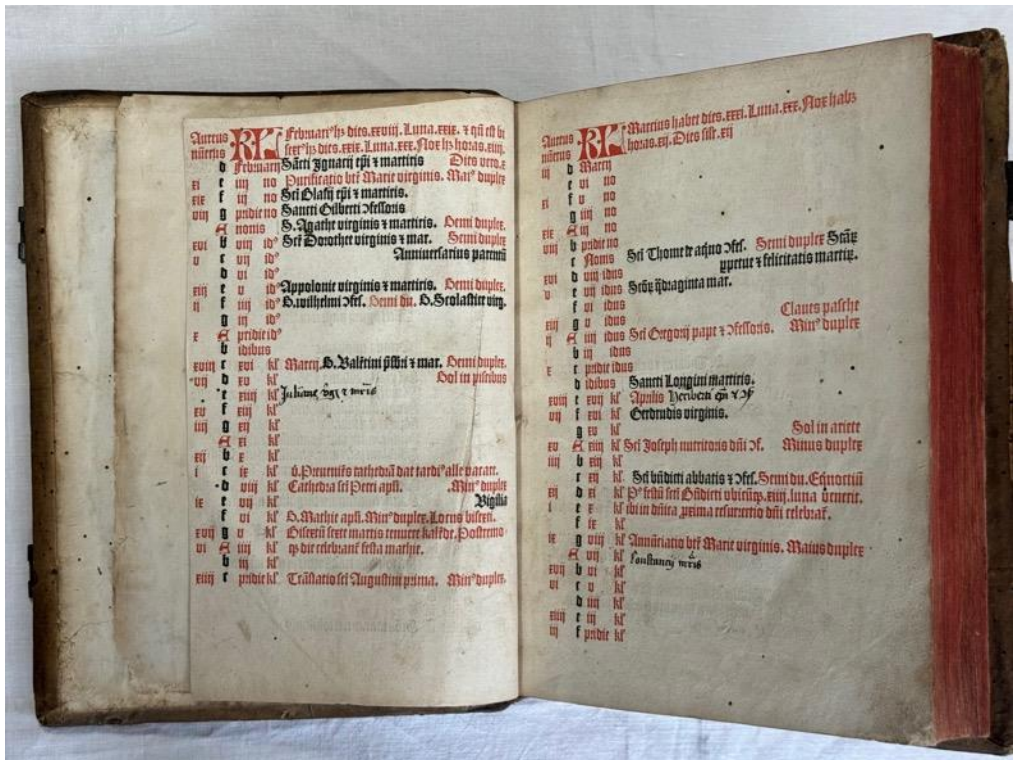 Aureus numerus
KL Februariꝰ hꝫ dies. xxviij. Luna. xxix. ⁊ qñ est bi
sextꝰ hꝫ dies. xxix. Luna. xxx. Nox hꝫ horas. xiiij.
d Februarij Sancti Ignacij epi ⁊ martiris Dies vero. x
xi e iiij no Purificatio bte Marie virginis. Maiꝰ duplex
xix f iij no Scti Blasij epi ⁊ martiris.
viij g pridie no Sancti Gilberti ɔfessoris
A nonis S. Agathe virginis ⁊ martiris. Semi duplex
xvi b viij idꝰ Scte Dorothee virginis ⁊ mar. Semi duplex
v c vij idꝰ Anniversarius parentū
d vi idꝰ
xiij e v idꝰ Appolonie virginis ⁊ martiris. Semi duplex
ij f iiij idꝰ S. wilhelmi ɔfes. Semi du. S. Scolastice virg.
g iij idꝰ
x A pridie idꝰ
b idibus
xviij c xvi kl Marcij S. Valētini p̄sbri ⁊ mar. Semi duplex.
vij d xv kl Sol in piscibus
e xiiij kl Juliane v̄gis ⁊ mr̄is
xv f xiij kl
iiij g xij kl
A xi kl
xij b x kl
i c ix kl
d viij kl Cathedra sci Petri apli. Minꝰ duplex
ix e vij kl Vigilia
f vi kl S. Mathie apli. Minꝰ duplex. Locus bisexti.
xvij g v kl Bisextū sexte martis tenuere kalēde. Postremo
vi A iiij kl qꝫ die celebrant festa mathie.
b iij kl
xiiij c pridie kl Trāslatio sci Augustini prima. Minꝰ duplex.
Aureus numerus
KL Marcius habet dies. xxxi. Luna. xxx. Nox habꝫ
horas. xij. Dies silr. xij
iij d Marcij
e vi no
xi f v no
g iiij no
xix A iij no
viij b pridie no
c Nonis Sci Thome de aqno ɔfes. Semi duplex Sctaꝝ
xvi d viij idus ꝑpetue ⁊ felicitatis martiꝝ.
v e vij idus Sctoꝝ q̄draginta mar.
f vi idus
xiij g v idus Claves pasche
ij A iiij idus Sci Gregorij pape ⁊ ɔfessoris. Minꝰ duplex
b iij idus
x c pridie idus
d idibus Sancti Longini martiris.
xviij e xvij kl Aprilis Heriberti epi ⁊ ɔf
vij f xvi kl Gerdrudis virginis.
g xv kl Sol in ariete
xv A xiiij kl Sci Joseph nutritoris dñi ɔf. Minus duplex
iiij b xiij kl
c xij kl Sci bñdicti abbatis ⁊ ɔfes. Semi du. Eqnoctiū
xij d xi kl Pꝰ festū sci Bñdicti ubicūqꝫ. xiiij. luna venerit.
i e x kl ibi in dñica ꝓxima resurrectio dñi celebrat.
f ix kl
ix g viij kl Annūciatio bte Marie virginis. Maius duplex
A vij kl
xvij b vi kl
vi c v kl
d iiij kl
xiiij e iij kl
iij f pridie kl